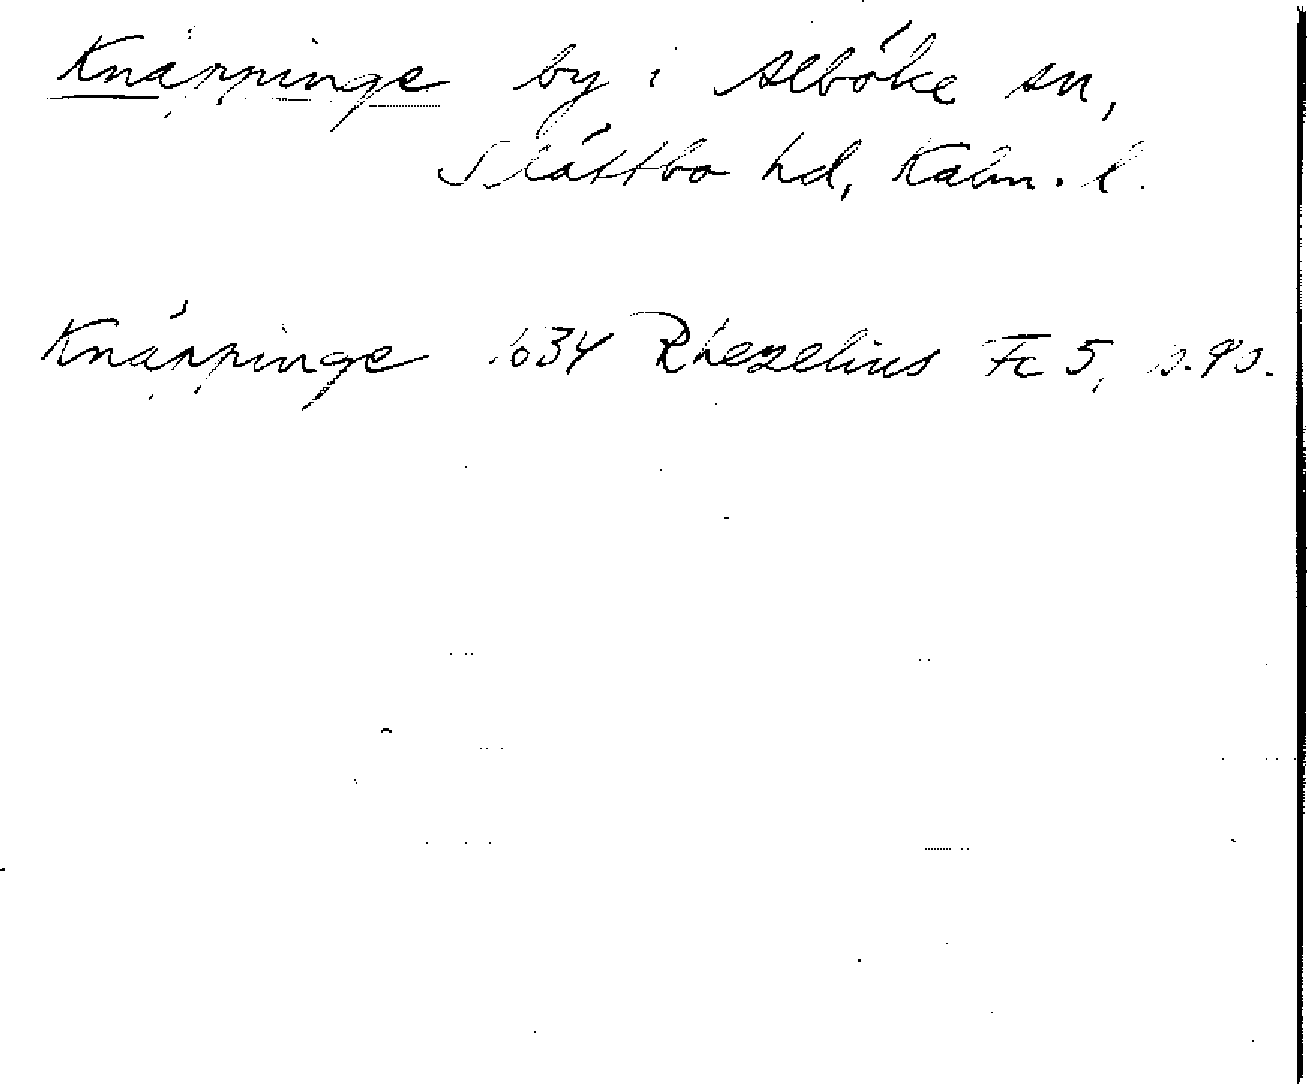 Knäppinge by i Alböke sn,
Slättbo hd, Kalm. l.
Knäppinge 1634 Rhezelius Fc 5, s. 90.